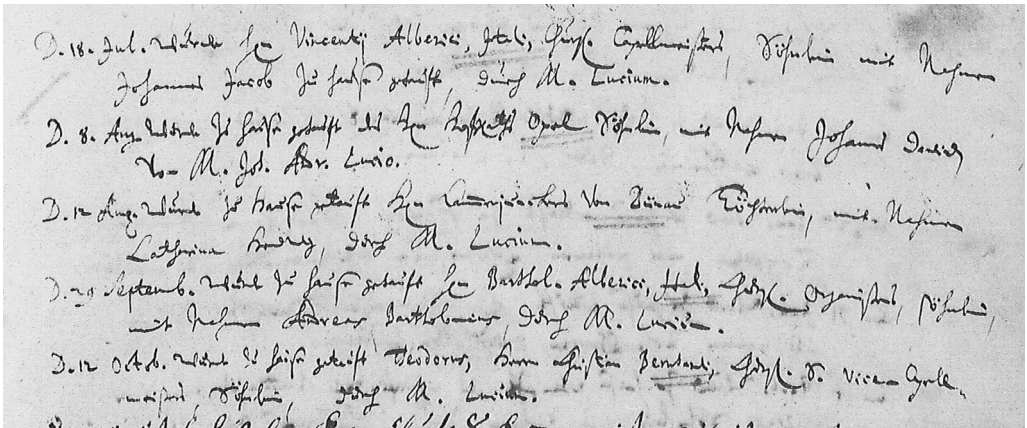 D. 18. Jul. wurde H. Vincentij Alberici, Itali, Churf. Capellmeisters, Söhnlein mit Nahmen
Johannes Jacob zu hause getauft, durch M. Lucium.
D. 8. Aug. wurde zu hause getauft des H. Opel Söhnlein, mit Nahmen Johannes David
von M. Joh. Andr. Lucio.
D. 12 Aug. wurde zu Hause getauft H. Cammerjunckers von Bünau Töchterlein, mit Nahmen
Catharina Hedwig, durch M. Lucium.
D. 29 Septemb. wurde zu hause getauft H. Barthol. Alberici, Itali, Churf. Organistens, söhnlein,
mit Nahmen Andreas Bartholomeus, durch M. Lucium.
D. 12 Octob. wurde zu hause getauft Teodorus, Herrn Christian Bernhardi, Churf. S. Vice-Capell-
meisters, Söhnlein, durch M. Lucium.